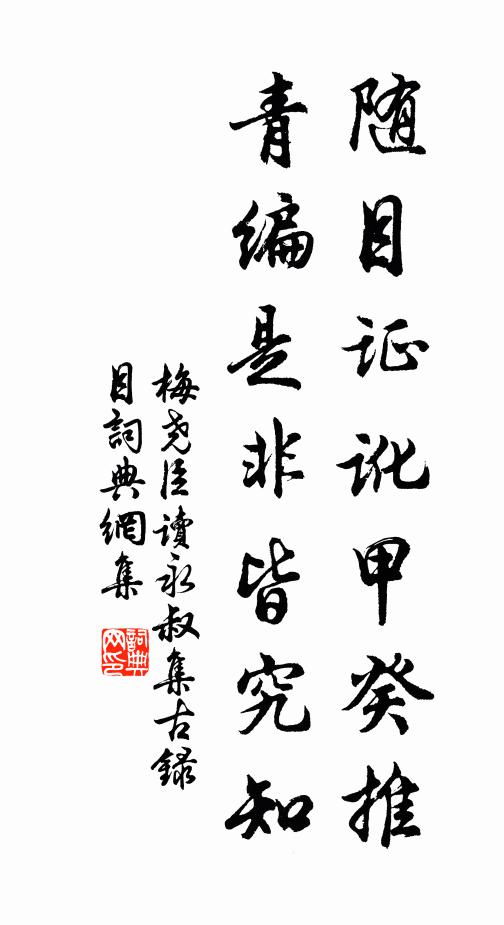 随目证讹甲癸推
青编是非皆究知
梅尧臣讀永叔集古録
目詞典網集
詞典网印